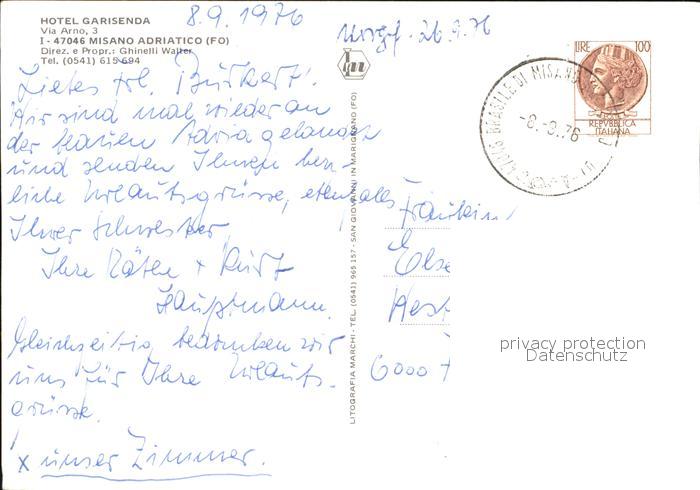 8.9.1976
HOTEL GARISENDA
Via Arno, 3
I - 47046 MISANO ADRIATICO (FO)
Direz. e Propr.: Ghinelli Walter
Tel. (0541) 615694
26.9.76
LIRE 100
REPVBBLICA
ITALIANA
-8.-9.76
Liebes Frl. Burkert!
Wir sind mal wieder an
der blauen Adria gelandet
und senden Ihnen herz-
liche Urlaubsgrüsse, ebenfalls
Ihrer Schwester,
Ihre Käten + Kurt
Hauptmann.
Gleichzeitig bedanken wir
uns für Ihre Urlaubs-
grüsse.
x unser Zimmer.
LITOGRAFIA MARCHI - TEL. (0541) 965 157 - SAN GIOVANNI IN MARIGNANO (FO)
Fräulein
Else
West
6000 F
privacy protection
Datenschutz